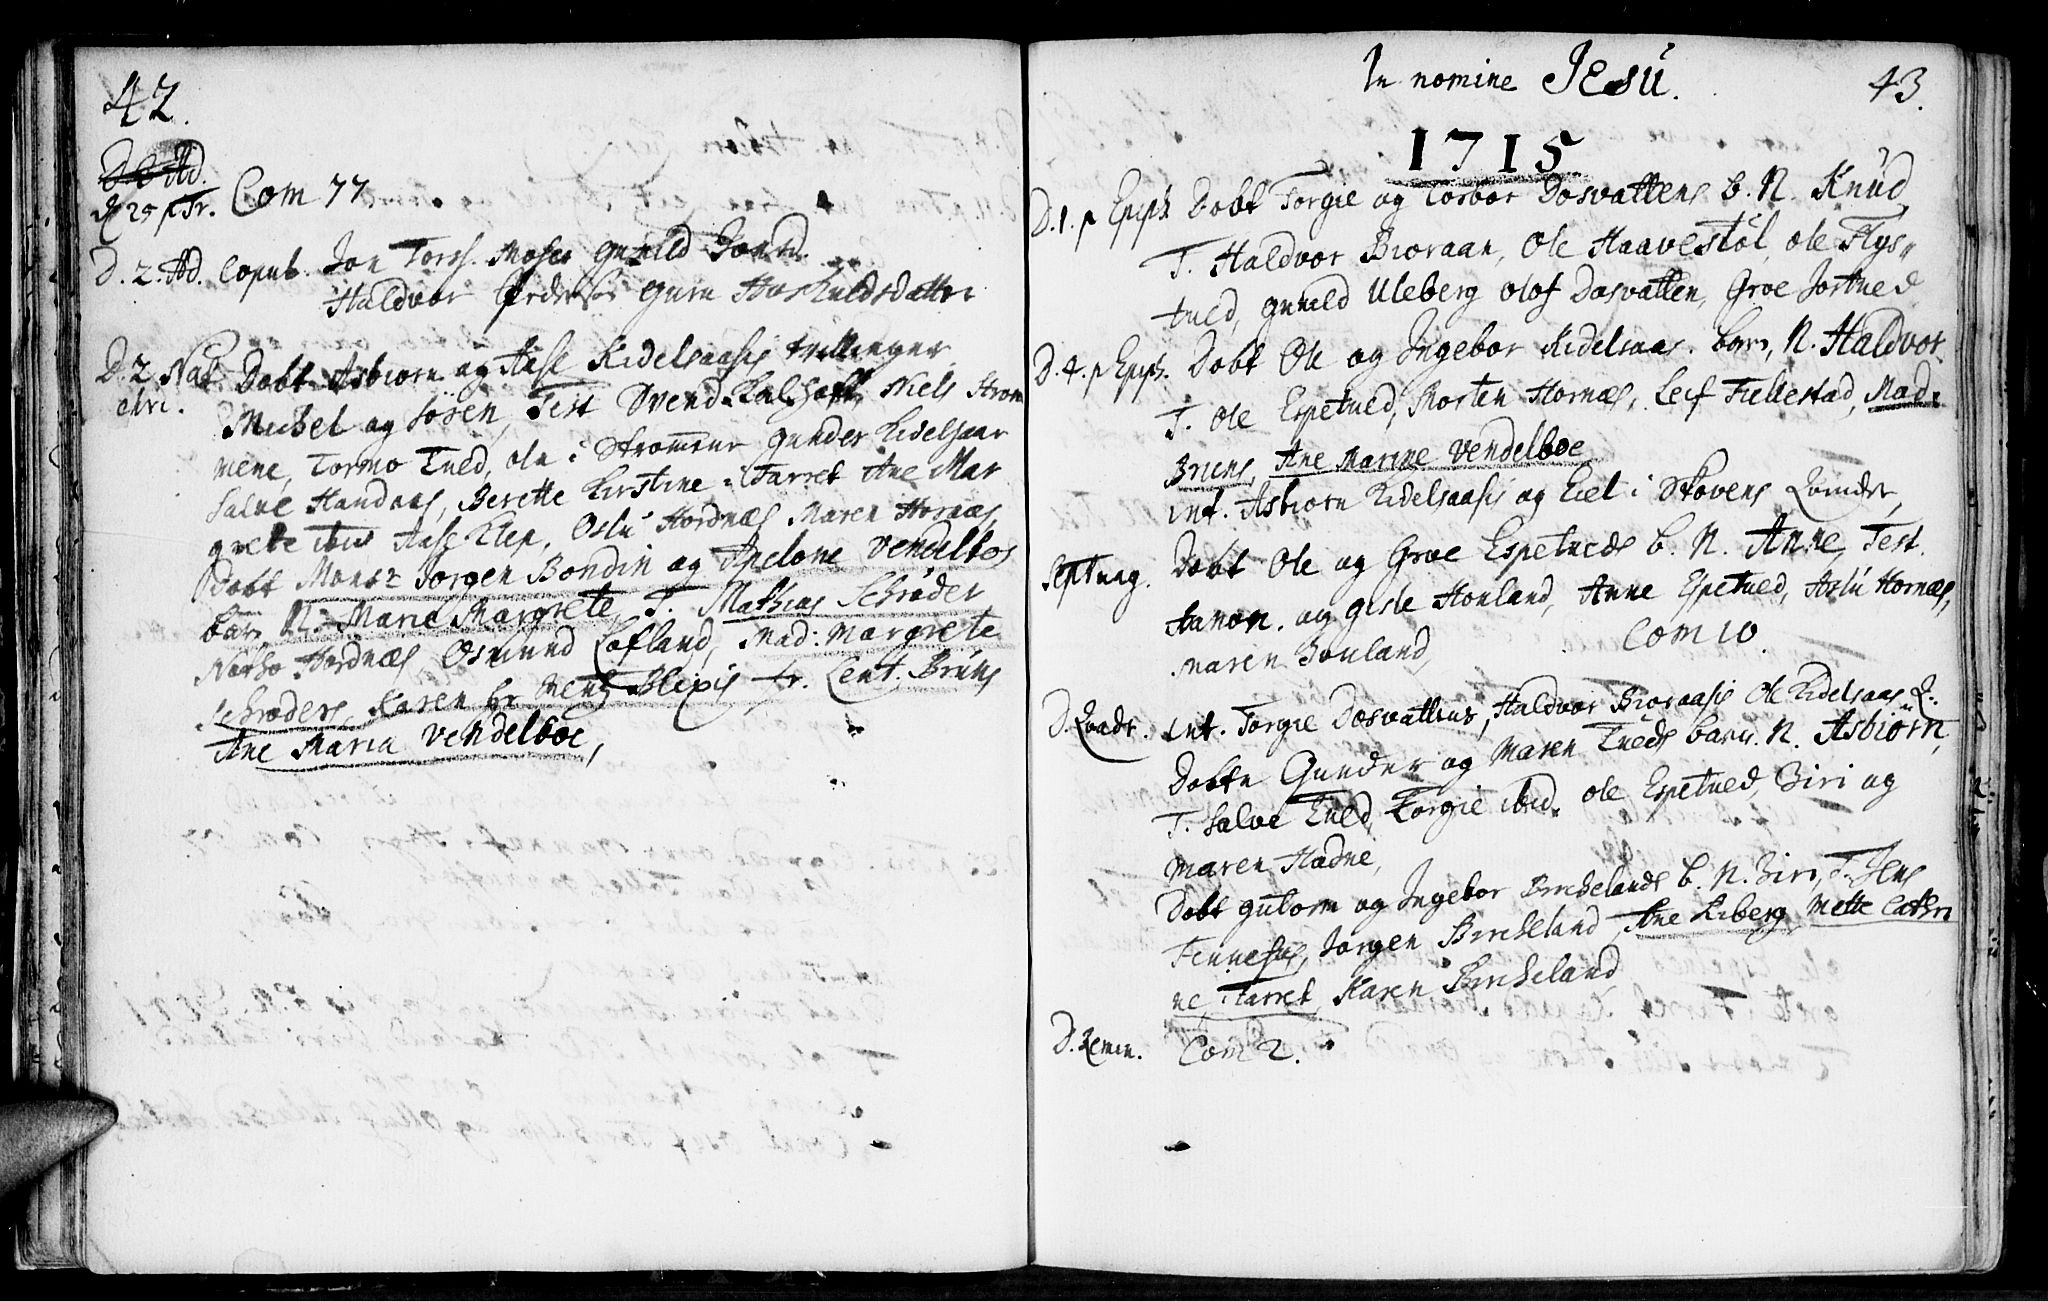 42.
D 2 Ad.
25 p Tr. Com 77
D. 2. Ad. Copul. Jon Torss. Moseı gunild
Haldvor guru
D. 2 Nat. Dobt Asbiorn og Aase Kidelsaasis tvillinger
chri. Michel og Søren, Test Svend Niels Strom
mene, Tormo Tued, ole i Strommen gunder Kidelsaas
Salve Handaas, Berette Kirstine i Farret Ane Mar
grete ibid Aase Klep, Oslu Hordnæs Maren Hornæs,
Dobt Monsr Jorgen Bondin og Apelone Vendelbos
barn N. Maria Margrete, T. Mathias Schrøder
Hordnæs, Osmund Lofland, Mad: Margrete
Schrøders, Karen Blixis fr. Lent. Bruns
Ane Maria Vendelboe,
In nomine Jesu. 43.
1715
D. 1. p Epiph Dobt Torgie og Torbor Dosvattens b. N. Knud,
T. Haldvor Bioraan, Ole Haavestøl, ole Flys„
tued, gunild Uleberg olof Dosvatten, Groe
D. 4. p Epiph. Dobt Ole og Ingebor Kidelsaas. barn, N. Haldvor.
T. ole Espetued, Morten Hornæs, Leif Fillestad, Mad:
Bruns, Ane Marine Vendelboe
int. Asbiorn Kidelsaasis og Eiel i Skovens Qvinder,
Septuag. Dobt Ole og Groe Espetueds b. N. Anne, Test.
Aanon. og Gisle Honland, Anne Espetued, Aslu Hornæs,
maren Honland, Com 10.
D. Qvadr. int. Torgie Dosvattens, Haldvor Bioraasis Ole Kidelsaas Q:
Dobte Gunder og Maren Tueds barn. N. Asbiørn,
T. Salve Tued, Torgie ibid. ole Espetued, Siri og
Maren Hadne,
Dobt gutorm og Ingebor Birchelands b. N. Siri, T. Jens
Finnesns, Jorgen Bircheland, Ane Kiberg, Mette Cathri
ne i Farret, Karen Bircheland,
D. Remin. Com 2.